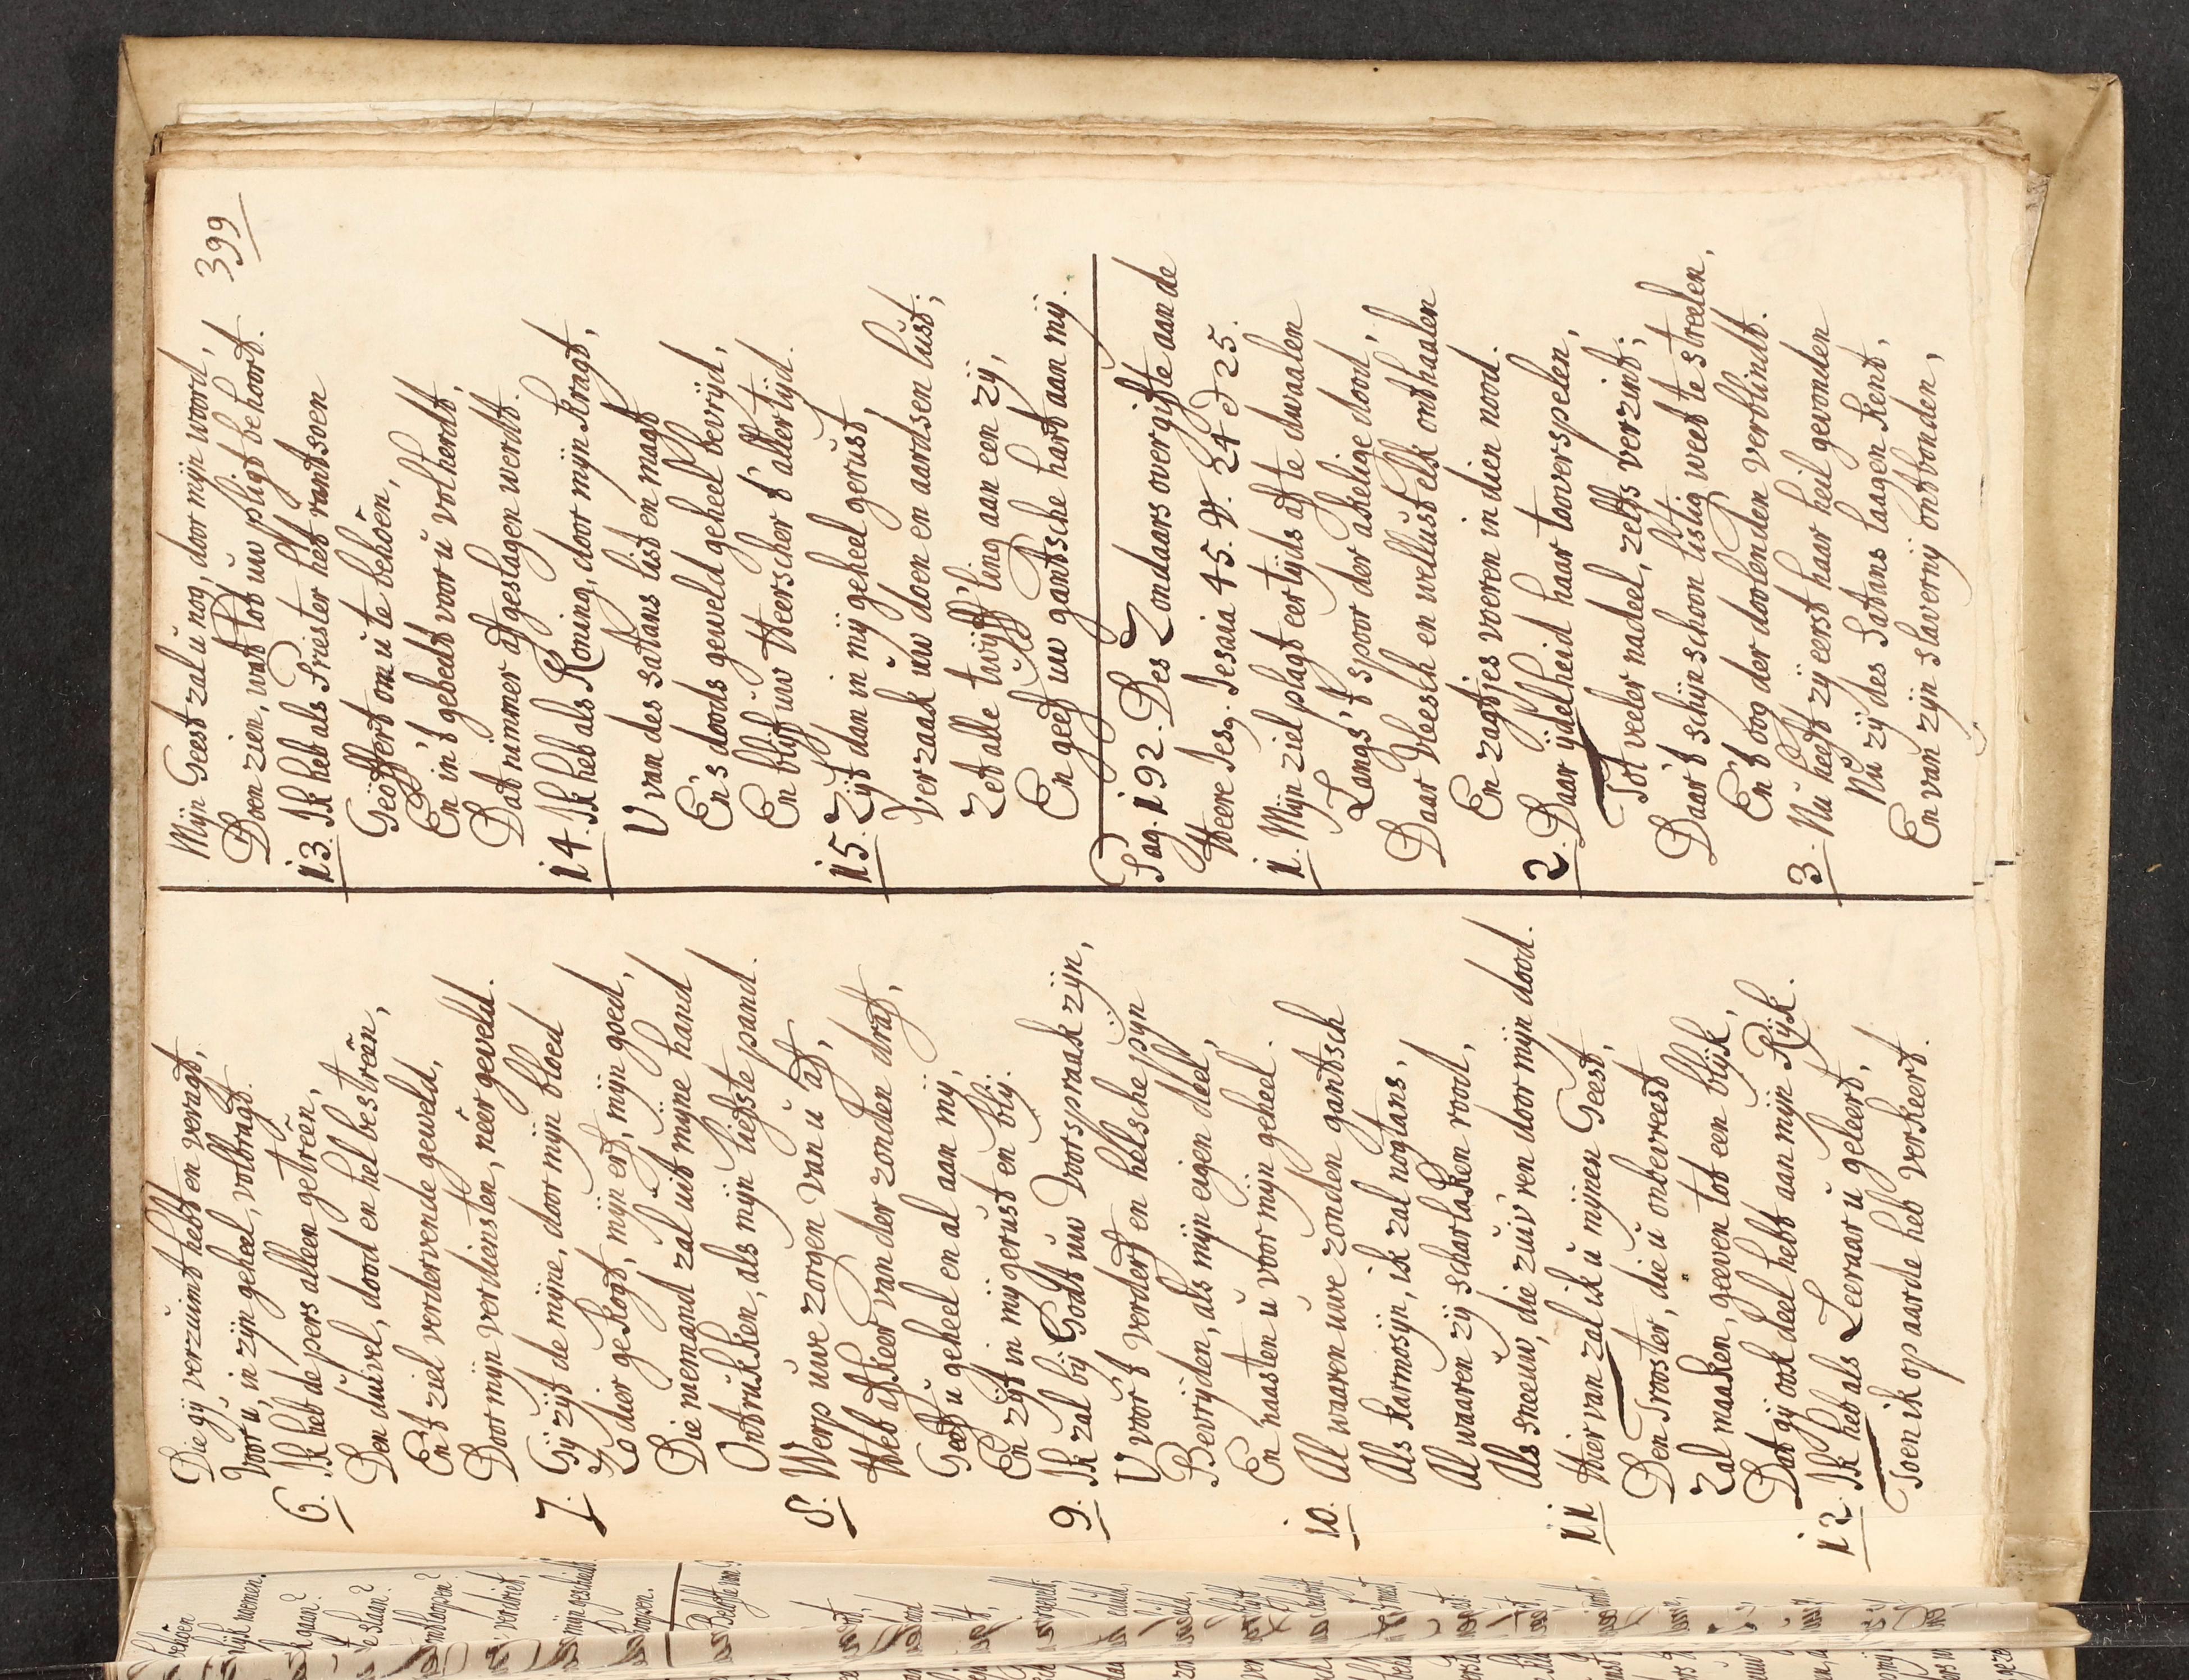 399
Die gij verzuimt hebt en veragt,
Voor u, in zijn geheel, volbragt.
6. Ik heb de pers alleen getreên,
Den duivel, dood en hel bestreên,
En't ziel verdervende geweld,
Door mijn verdiensten, neêrgeveld.
7. Gij zijt de mijne, door mijn bloed
Zo dier gekogt, mijn erf, mijn goed,
Die niemand zal uit mijne hand
Ontrukken, als mijn liefste pand.
8. Werp uwe zorgen van u af,
Heb afkeer van der zonden draf,
Geef u geheel en al aan mij,
En zijt in mij gerust en blij.
9. Ik zal bij Godt uw Voorspraak zijn,
U voor't verderf en helsche pijn
Bevrijden, als mijn eigen deel,
En naasten u voor mijn geheel.
10. Al waaren uwe zonden gantsch
Als karmosijn, ik zal nogtans,
Al waaren zij scharlaken rood,
Als sneeuw, die zuiv'ren door mijn dood.
11. Hier van zal ik u mijnen Geest,
Den Trooster, die u onbevreest
Zal maaken, geeven tot een blijk,
Dat gij ook deel hebt aan mijn Rijk.
12. Ik heb als Leeraar u geleert,
Toen ik op aarde heb verkeert.
Mijn Geest zal u nog, door mijn woord,
Doen zien, wat tot uw pligt behoort.
13. Ik heb als Priester het rantsoen
Geöffert om u te behoên,
En in't gebedt voor u volherdt,
Dat nimmer afgeslagen werdt.
14. Ik heb als Koning, door mijn kragt,
U van des satans list en magt
En's doods geweld geheel bevrijd,
En blijf uw Heerscher t'allertijd.
15. Zijt dan in mij geheel gerust,
Verzaak uw doen en aardsen lust;
Zet alle twijff'ling aan een zij,
En geef uw gantsche hart aan mij.
Pag. 192. Des Zondaars overgifte aan de
Heere Jesq. Jesaia 45. V. 24 & 25.
1. Mijn ziel plagt eertijds af te dwaalen
Langs't spoor der aaklige dood,
Daar Vleesch en wellust elk onthaalen
En zagtjes voeren in dien nood.
2. Daar ijdelheid haar tooverspelen,
Tot veeler nadeel, zelfs verzint;
Daar't schijnschoon listig weet te streelen,
En't oog der doolenden verblindt.
3. Nu heeft zij eerst haar heil gevonden
Nu zij des Satans laagen kent,
En van zijn slavernij ontbonden,